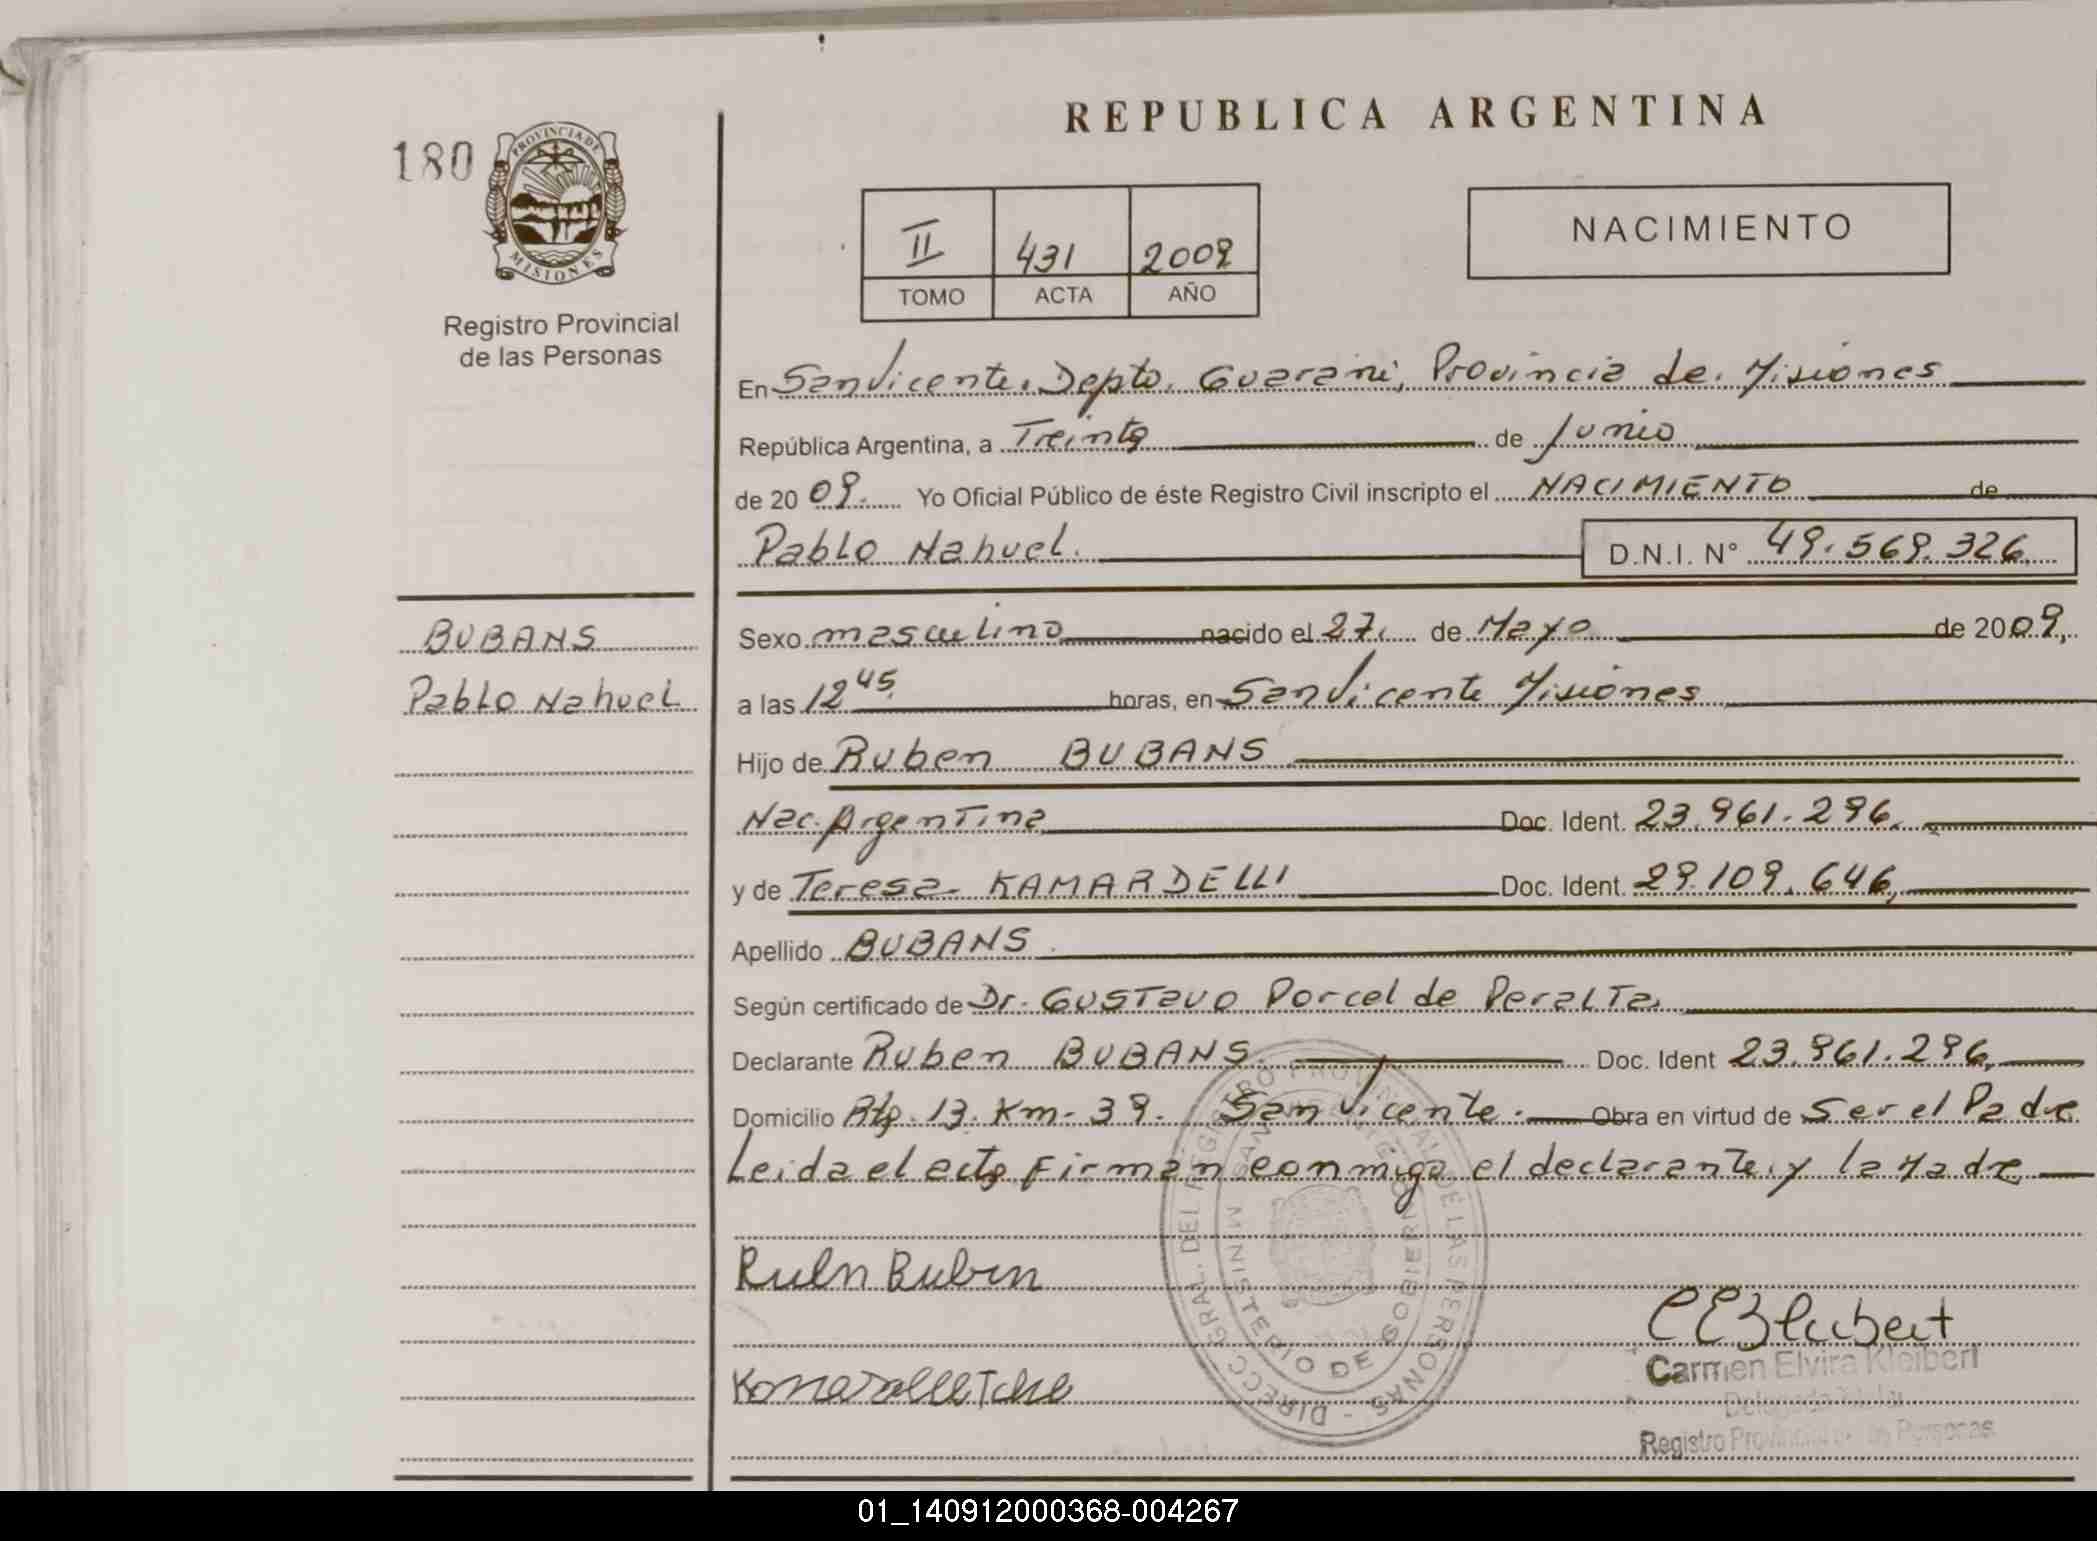 REPUBLICA ARGENTINA
180
PROVINCIA DE
MISIONES
Registro Provincial
de las Personas
II 431 2009
TOMO ACTA AÑO
NACIMIENTO
En San Vicente. Depto. Guarani, Provincia de Misiones
República Argentina, a Treinta de Junio
de 2009. Yo Oficial Público de éste Registro Civil inscripto el NACIMIENTO de
Pablo Nahuel. D.N.I. N° 49.569.326
BUBANS
Pablo Nahuel
Sexo masculino nacido el 27. de Mayo de 2009,
a las 12 45 horas, en San Vicente Misiones
Hijo de Ruben BUBANS
Nac. Argentina Doc. Ident. 23.961.296.
y de Teresa KAMARDELLI Doc. Ident. 29.109.646,
Apellido BUBANS.
Según certificado de Dr. Gustavo Porcel de Peralta.
Declarante Ruben BUBANS. Doc. Ident 23.961.296,
Domicilio Rta. 13. Km. 39. San Vicente. Obra en virtud de Ser el Padre
Leida el acta Firman conmigo el declarante y la Madre
DIRECC. GRAL. DEL REGISTRO PROVINCIAL DE LAS PERSONAS
MINISTERIO DE GOBIERNO
SAN VICENTE
Carmen Elvira Kleibert
Delegada Titular
Registro Provincial de las Personas
01_140912000368-004267